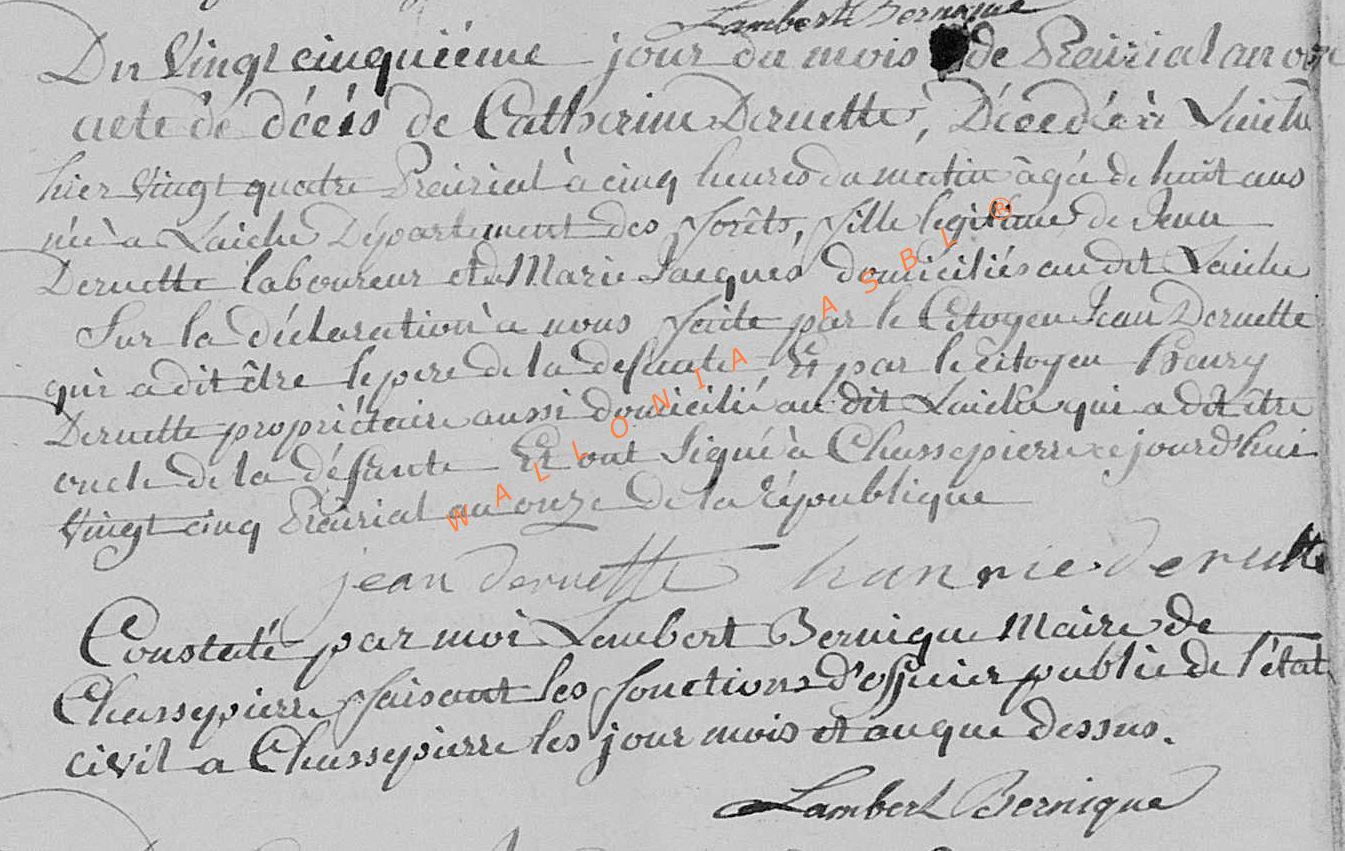 Lambert Bernique
Du Vingt cinquiéme jour du mois de Prairial an on
acte de décés de Catherine Deruette, Décedée à Laiche
hier Vingt quatre Prairial à cinq heures du matin âgée de huit ans
née à Laiche Département des forêts, fille legitime de Jean
Deruette laboureur et de Marie Jacques, domiciliés au dit Laiche
Sur la déclaration à nous faite par le Citoyen Jean Deruette
qui a dit être le pere de la defunte Et par le citoyen Henry
Deruette propriétaire aussi domicilié au dit Laiche qui a dit être
oncle de la défunte Et ont Signé à Chassepierre ce jourd'hui
Vingt cinq Prairial an onze de la République
jean deruette hanrie deruette
Constaté par moi Lambert Bernique Maire de
Chassepierre faisant les fonctions d'officier public de l'état
civil a Chassepierre les jour mois et an que dessus.
Lambert Bernique
WALLONIA ASBL ®